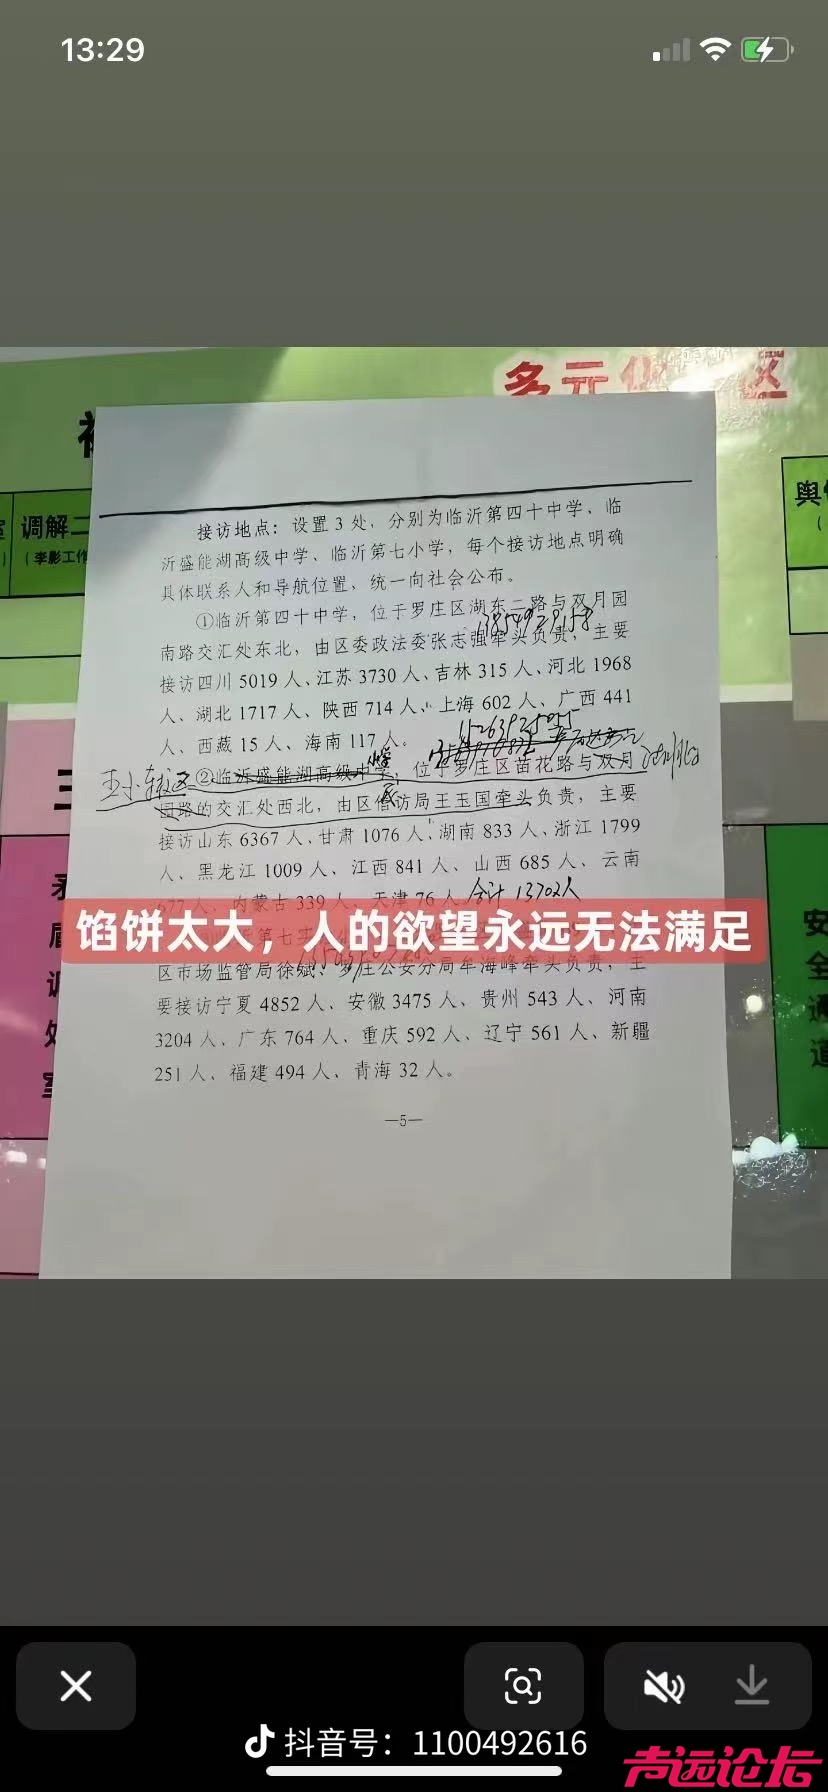 13:29
多元化
调解二
(李影工作
舆
接访地点：设置 3 处，分别为临沂第四十中学、临
沂盛能湖高级中学、临沂第七小学，每个接访地点明确
具体联系人和导航位置，统一向社会公布。
①临沂第四十中学，位于罗庄区湖东二路与双月园
南路交汇处东北，由区委政法委张志强牵头负责，主要
接访四川 5019 人、江苏 3730 人、吉林 315 人、河北 1968
人、湖北 1717 人、陕西 714 人、上海 602 人、广西 441
人、西藏 15 人、海南 117 人。
②临沂盛能湖高级中学，位于罗庄区苗花路与双月
园路的交汇处西北，由区信访局王玉国牵头负责，主要
接访山东 6367 人、甘肃 1076 人、湖南 833 人、浙江 1799
人、黑龙江 1009 人、江西 841 人、山西 685 人、云南
677 人、内蒙古 339 人、天津 76 人
合计 13702人
馅饼太大，人的欲望永远无法满足
区市场监管局徐斌、罗庄公安分局牟海峰牵头负责，主
要接访宁夏 4852 人、安徽 3475 人、贵州 543 人、河南
3204 人、广东 764 人、重庆 592 人、辽宁 561 人、新疆
251 人、福建 494 人、青海 32 人。
—5—
三
安全通道
抖音号：1100492616
声远论坛